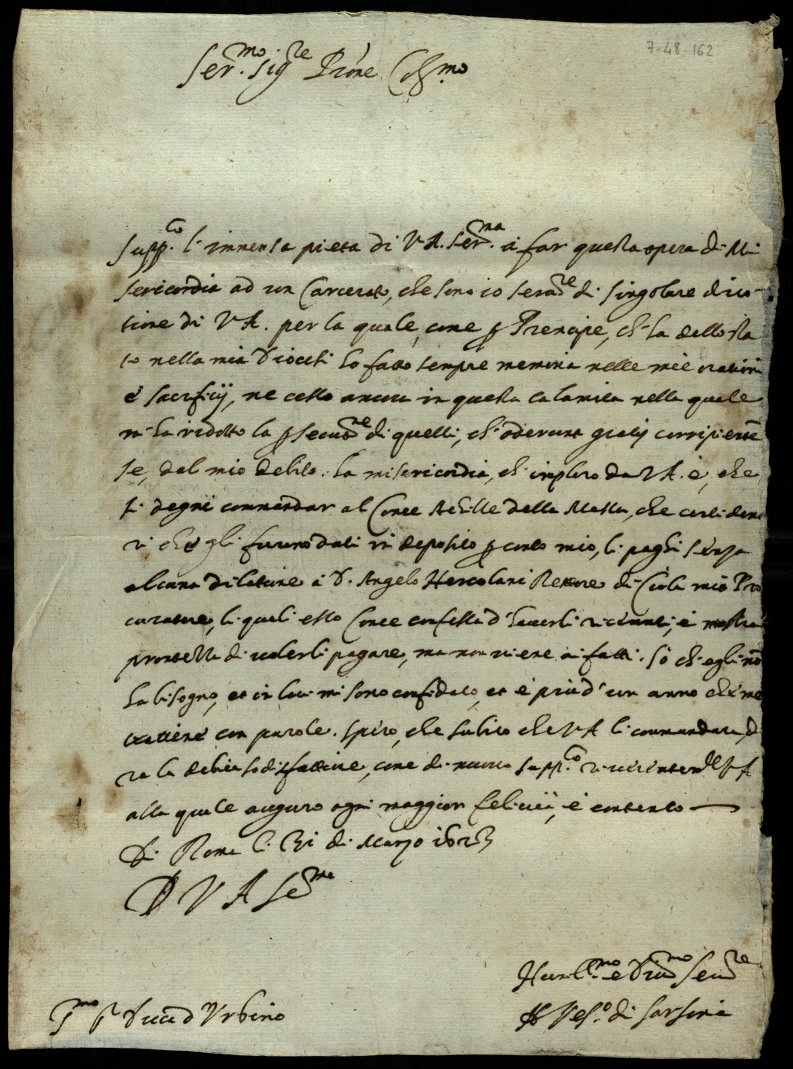 7-48-162
Ser.mo Sig.re P̃rone Col.mo
Supp.co l'immensa pieta di V.A. Ser.ma à far questa opera di Mi
sericordia ad un Carcerato, che sono io ser.re di singolare divo-
tione di V.A. per la quale, come Prencipe, c'hà dello sta
to nella mia Diocesi hò fatto sempre memoria nelle mie orationi
è sacrificij, ne cesso ancora in questa calamita nella quale
m'hà ridotto la di quelli, ch'oderunt
se, del mio debito. La misericordia, ch'imploro da V.A. è, che
si degni commandar al Conte Achille della Massa, che certi dena
ri che gli furono dati in deposito conto mio, li paghi senza
alcuna dilatione à D. Angelo Hercolani Rettore di Ciola mio Pro
curatore, li quali esso Conte confessa d'haverli ricevuti, è mostra
prontezza di volerli pagare, ma non viene à fatti. Sò ch'egli nõ
hà bisogno, et in lui mi sono confidato, et è più d'un anno che me
trattiene con parole. Spero, che subito che V.A. li commandara, d
rà la debita sodisfattione, come di nuovo supp.co V.A
alla quale auguro ogni maggior felicità, è contento
Di Roma li 31 di Marzo 1623
D V A Se.ma
Hum.mo e Div.mo Ser.re
Il Ves.o di Sarsina
S.r Duca d'Urbino